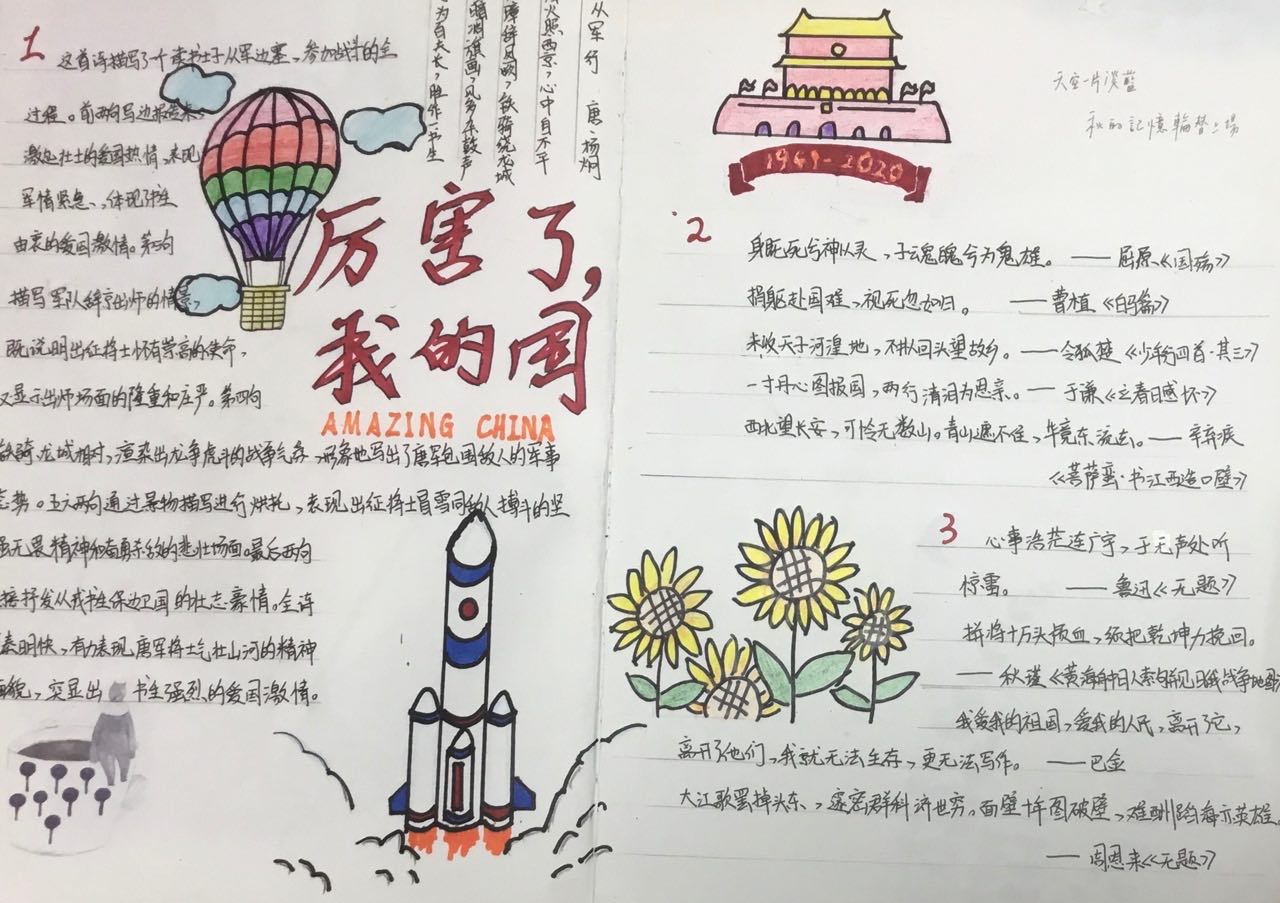 1
这首诗描写了一个读书士子从军边塞、参加战斗的全
过程。前两句写边报传来,
激起壮士的爱国热情,表现
军情紧急、体现书生
由衷的爱国激情。第三句
描写军队辞京出师的情景,
既说明出征将士怀有崇高的使命,
又显示出师场面的隆重和庄严。第四句
铁骑龙城相对,渲染出龙争虎斗的战争气氛,形象地写出了唐军包围敌人的军事
态势。五六两句通过景物描写进行烘托,表现出征将士冒雪同敌人搏斗的坚
强无畏精神和奋勇杀敌的悲壮场面。最后两句
接抒发从戎书生保边卫国的壮志豪情。全诗
素明快,有力表现唐军将士气壮山河的精神
面貌,突显出 书生强烈的爱国激情。
从军行 唐·杨炯
火照西京,心中自不平
璋辞凤阙,铁骑绕龙城
暗凋旗画,风多杂鼓声
为百夫长,胜作一书生
厉害了,
我的国
AMAZING CHINA
1949-2020
天空一片淡藍
秋的記憶輪替上場
2
身既死兮神以灵,子魂魄兮为鬼雄。——屈原《国殇》
捐躯赴国难,视死忽如归。——曹植《白马篇》
未收天子河湟地,不拟回头望故乡。——令狐楚《少年行四首·其三》
一寸丹心图报国,两行清泪为思亲。——于谦《立春日感怀》
西北望长安,可怜无数山。青山遮不住,毕竟东流去。——辛弃疾
《菩萨蛮·书江西造口壁》
3
心事浩茫连广宇,于无声处听
惊雷。——鲁迅《无题》
拼将十万头颅血,须把乾坤力挽回。
——秋瑾《黄海舟中日人索句并见日俄战争地图》
我爱我的祖国,爱我的人民,离开了它,
离开了他们,我就无法生存,更无法写作。——巴金
大江歌罢掉头东,邃密群科济世穷。面壁十年图破壁,难酬蹈海亦英雄。
——周恩来《无题》